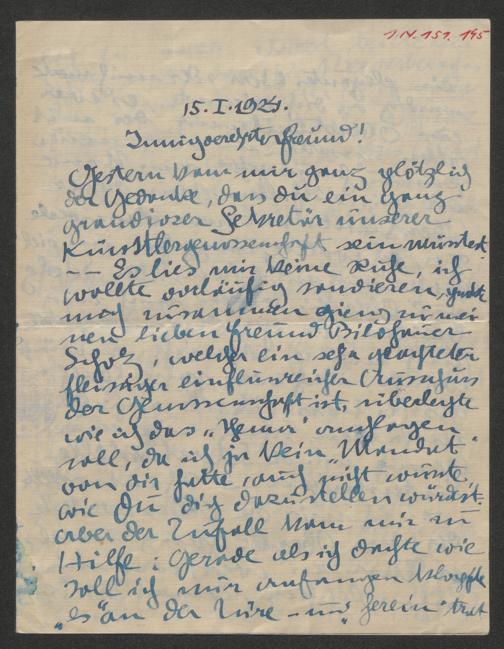 I.N. 151.195
15.I.1921.
Innigverehrter Freund!
Gestern kam mir ganz plötzlich
der Gedanke, dass du ein ganz
grandioser Sekretär unserer
Künstlergenossenschaft sein müsstest
-- Es lies mir keine Ruhe, ich
wollte vorläufig sondieren, packte
mich zusammen gieng zu mei-
nen lieben Freund Bildhauer
Scholz, welcher ein sehr geachteter
fleissiger einflussreicher Ausschuss
der Genossenschaft ist, überlegte
wie ich das „Thema" anschlagen
soll, da ich ja kein „Mandat"
von dir hatte, auch nicht wusste,
wie Du dich dazu stellen würdest.
aber der Zufall kam mir zu
Hilfe: Gerade als ich dachte wie
soll ich nur anfangen klopfte
„es" an der Türe - und „herein" trat